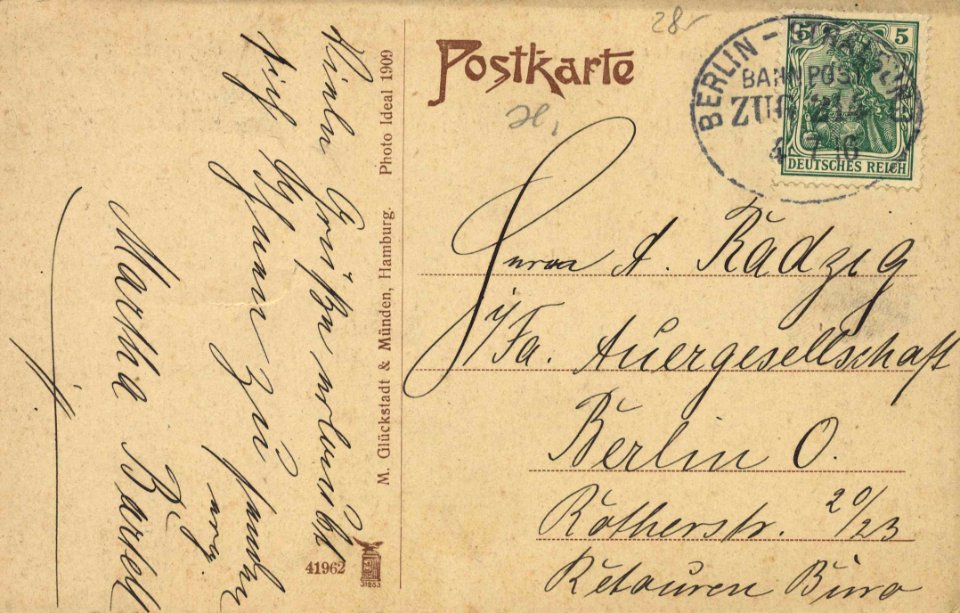 28.-
Postkarte
BERLIN -
BAHNPOST
ZUG
5 5
DEUTSCHES REICH
Herrn A. Radzig
i/Fa. Auergesellschaft
Berlin O.
Rotherstr. 20/23
Retouren Büro
M. Glückstadt & Münden, Hamburg. Photo Ideal 1909
41962
Viele Grüße erlaubt
sich Ihnen zu senden
erg.
Martha Bartell